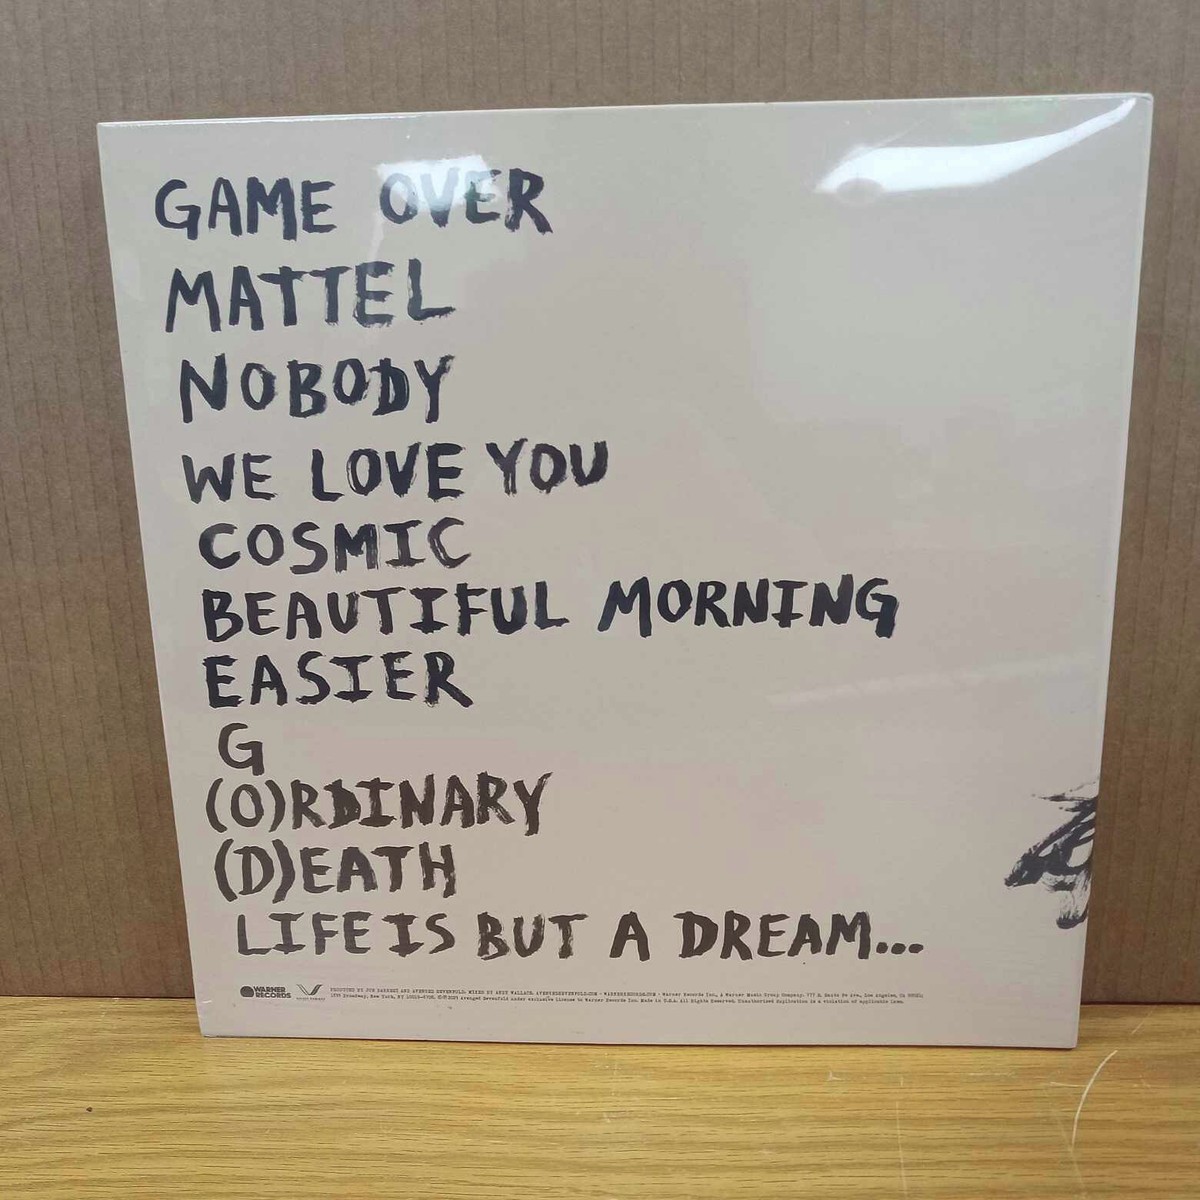 GAME OVER
MATTEL
NOBODY
WE LOVE YOU
COSMIC
BEAUTIFUL MORNING
EASIER
G
(O)RDINARY
(D)EATH
LIFE IS BUT A DREAM...
WARNER RECORDS
PRODUCED BY JOE BARRESI AND AVENGED SEVENFOLD. MIXED BY ANDY WALLACE. AVENGEDSEVENFOLD.COM - WARNERRECORDS.COM - Warner Records Inc., A Warner Music Group Company. 777 S. Santa Fe Ave, Los Angeles, CA
Broadway, New York, NY Avenged Sevenfold under exclusive license to Warner Records Inc. Made in U.S.A. All Rights Reserved. Unauthorized duplication is a violation of applicable laws.